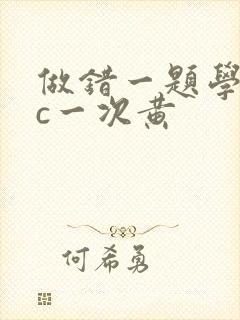 做錯一題學
c一次黄
何希勇